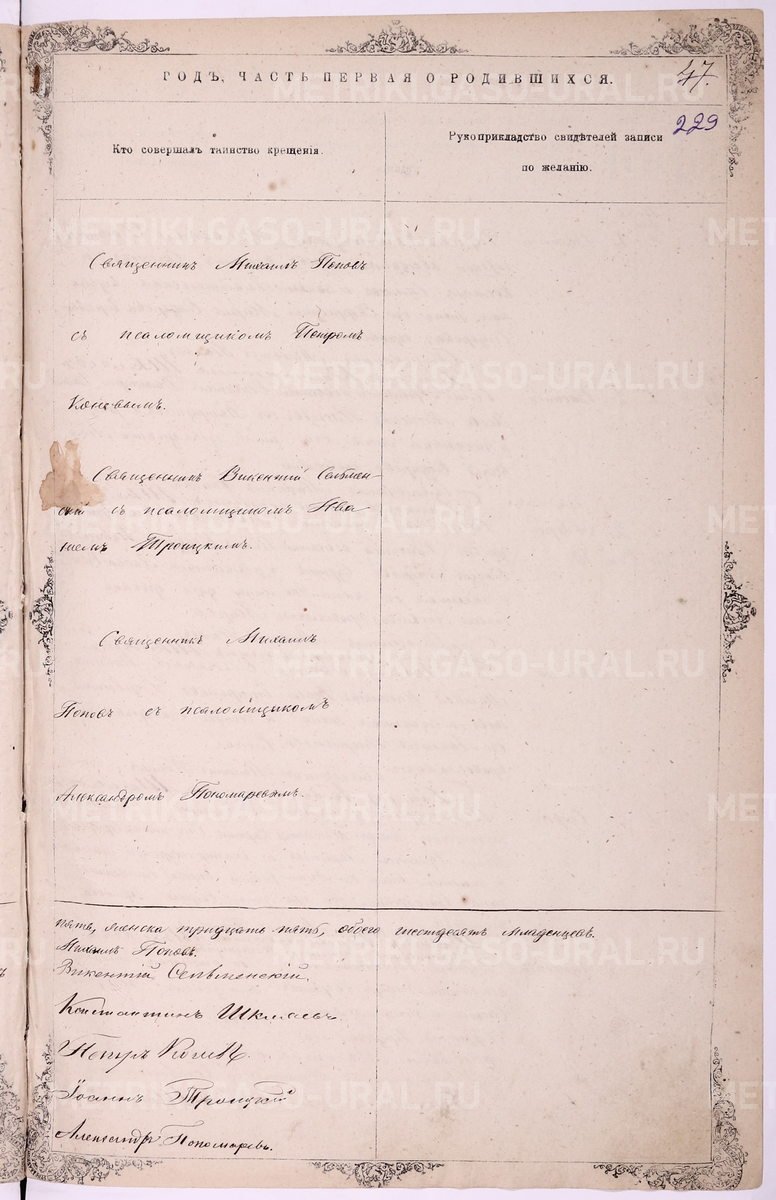 ГОДЪ, ЧАСТЬ ПЕРВАЯ О РОДИВШИХСЯ.
47.
229
Кто совершалъ таинство крещенія.
Рукоприкладство свидѣтелей записи
по желанію.
METRIKI.GASO-URAL.RU
Священникъ Михаилъ Поповъ
съ псаломщикомъ Петромъ
Коневымъ.
Священникъ Викентій Селѣмен-
скій съ псаломщикомъ Ива
номъ Троицкимъ.
Священникъ Михаилъ
Поповъ съ псаломщикомъ
Александромъ Пономаревымъ.
пять, женска тридцать пять, обоего шестьдесятъ младенцевъ.
Михаилъ Поповъ.
Викентій Селѣменскій.
Константинъ
Петръ Коневъ.
Іоаннъ Троицкій
Александръ Пономаревъ.